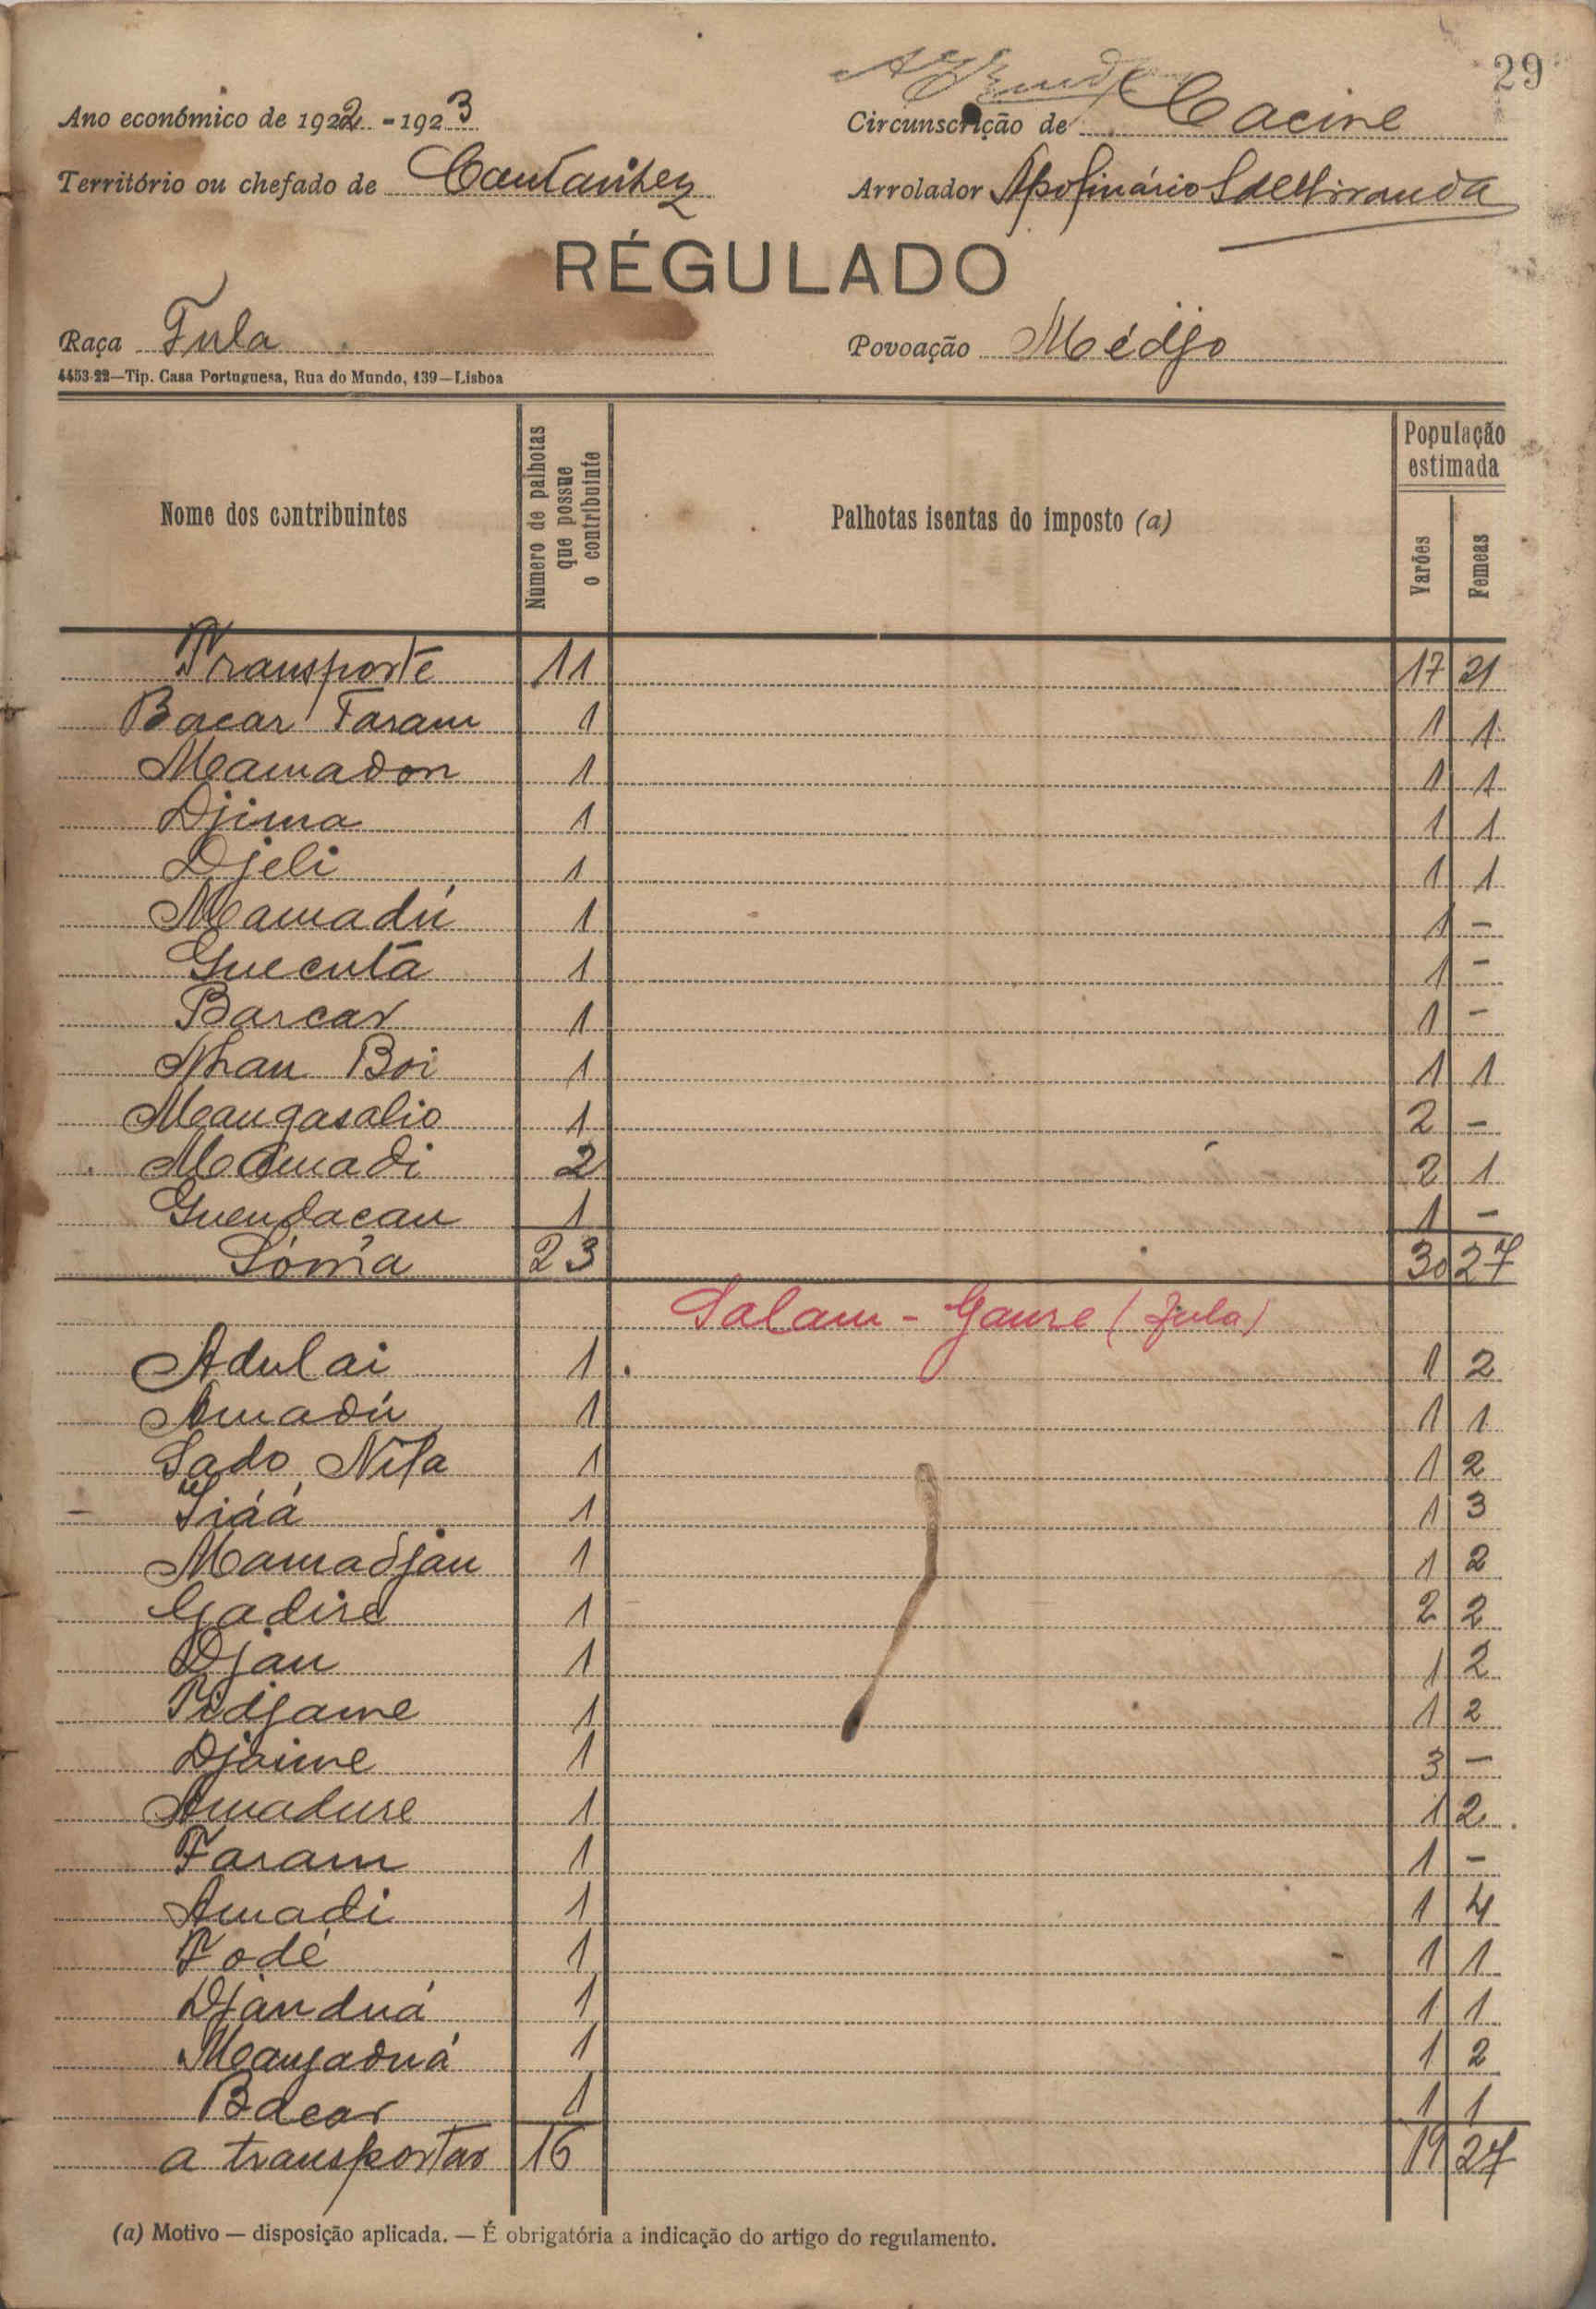 29
Ano económico de 1922-1923
Circunscrição de Cacine
Território ou chefado de Cantanhez
Arrolador Apolinário S de Miranda
RÉGULADO
Raça Fula
Povoação Médjo
4453-22—Tip. Casa Portuguesa, Rua do Mundo, 139—Lisboa
Nome dos contribuintes
Número de palhotas que possue o contribuinte
Palhotas isentas do imposto (a)
População estimada
Varões
Femeas
Transporte 11 17 21
Bacar Faram 1 1 1
Mamadon 1 1 1
Djima 1 1 1
Djeli 1 1 1
Mamadú 1 1 -
Guecutá 1 1 -
Barcar 1 1 -
Nhan Boi 1 1 1
Mangasalio 1 2 -
Mamadi 2 2 1
Guendacan 1 1 -
Sôma 23 30 27
Salam - Gaure (Fula)
Adulai 1 1 2
Amadú 1 1 1
Sado Nila 1 1 2
Siáá 1 1 3
Mamadjan 1 1 2
Gadire 1 2 2
Djau 1 1 2
Tidjame 1 1 2
Djaime 1 3 -
Amadure 1 1 2
Faram 1 1 -
Amadi 1 1 4
Fodé 1 1 1
Djanduá 1 1 1
Manjaduá 1 1 2
Bacar 1 1 1
a transportar 16 19 27
(a) Motivo — disposição aplicada. — É obrigatória a indicação do artigo do regulamento.